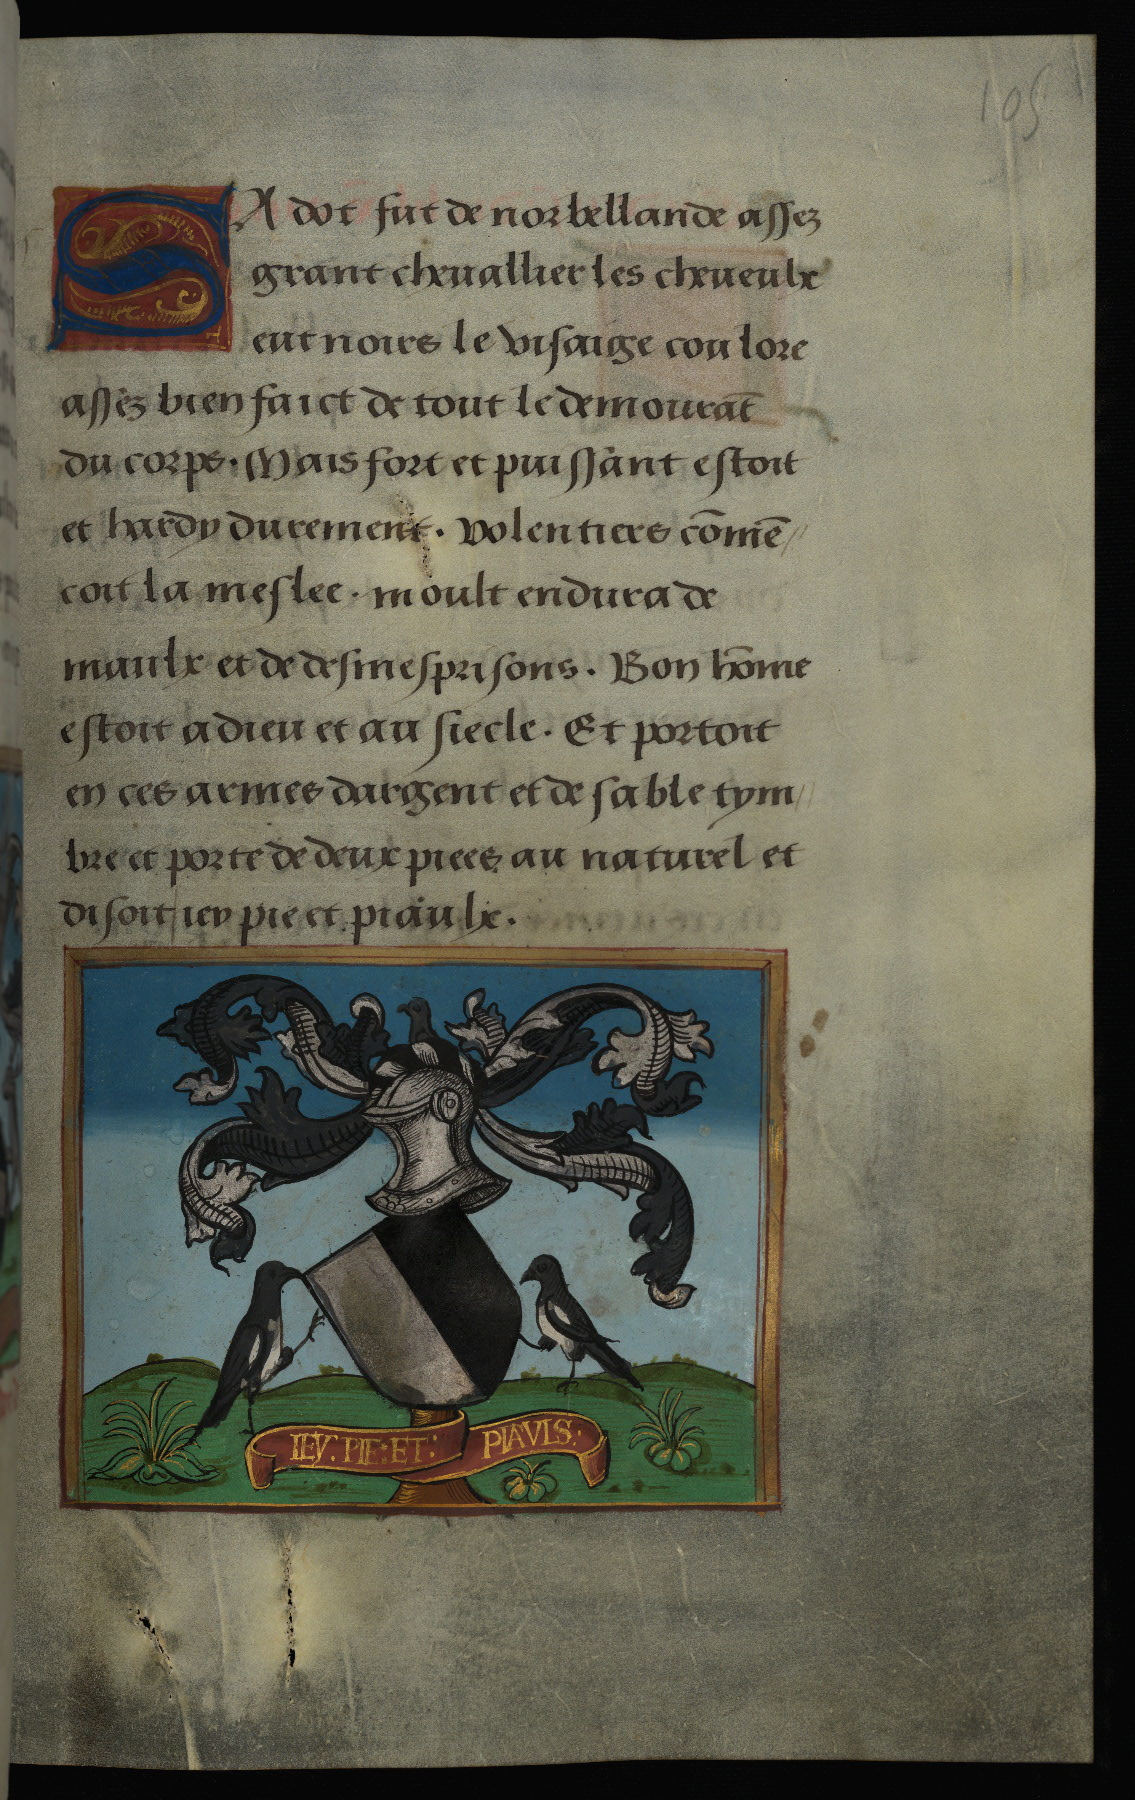 105
SAdot fut de norbellande assez
grant cheuallier les cheueulx
eut noirs le visaige coulore
assez bien faict de tout le demourāt
du corps. Mais fort et puissant estoit
et hardy durement. Volentiers cōmē//
coit la meslee. moult endura de
maulx et de desmesprisons. Bon hōme
estoit a dieu et au siecle. Et portoit
en ces armes dargent et de sable tym//
bre et porte de deux piees au naturel et
disoit iey pie et piaulx.
IEV: PIE: ET: PIAVLS: